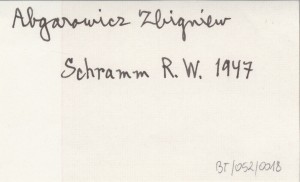 Abgarowicz Zbigniew
Schramm R. W. 1947
BT/052/0018